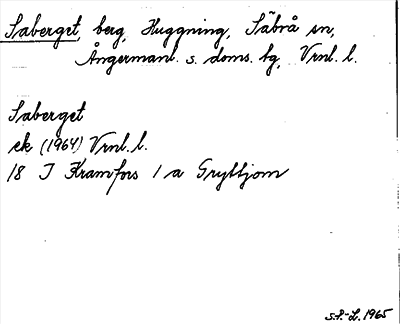 Saberget, berg, Huggning, Säbrå sn,
Ångermanl. s. doms. hg, Vrnl. l.
Saberget
ek (1964) Vrnl. l.
18 I Kramfors 1 a Gryttjom
S.P.-L. 1965